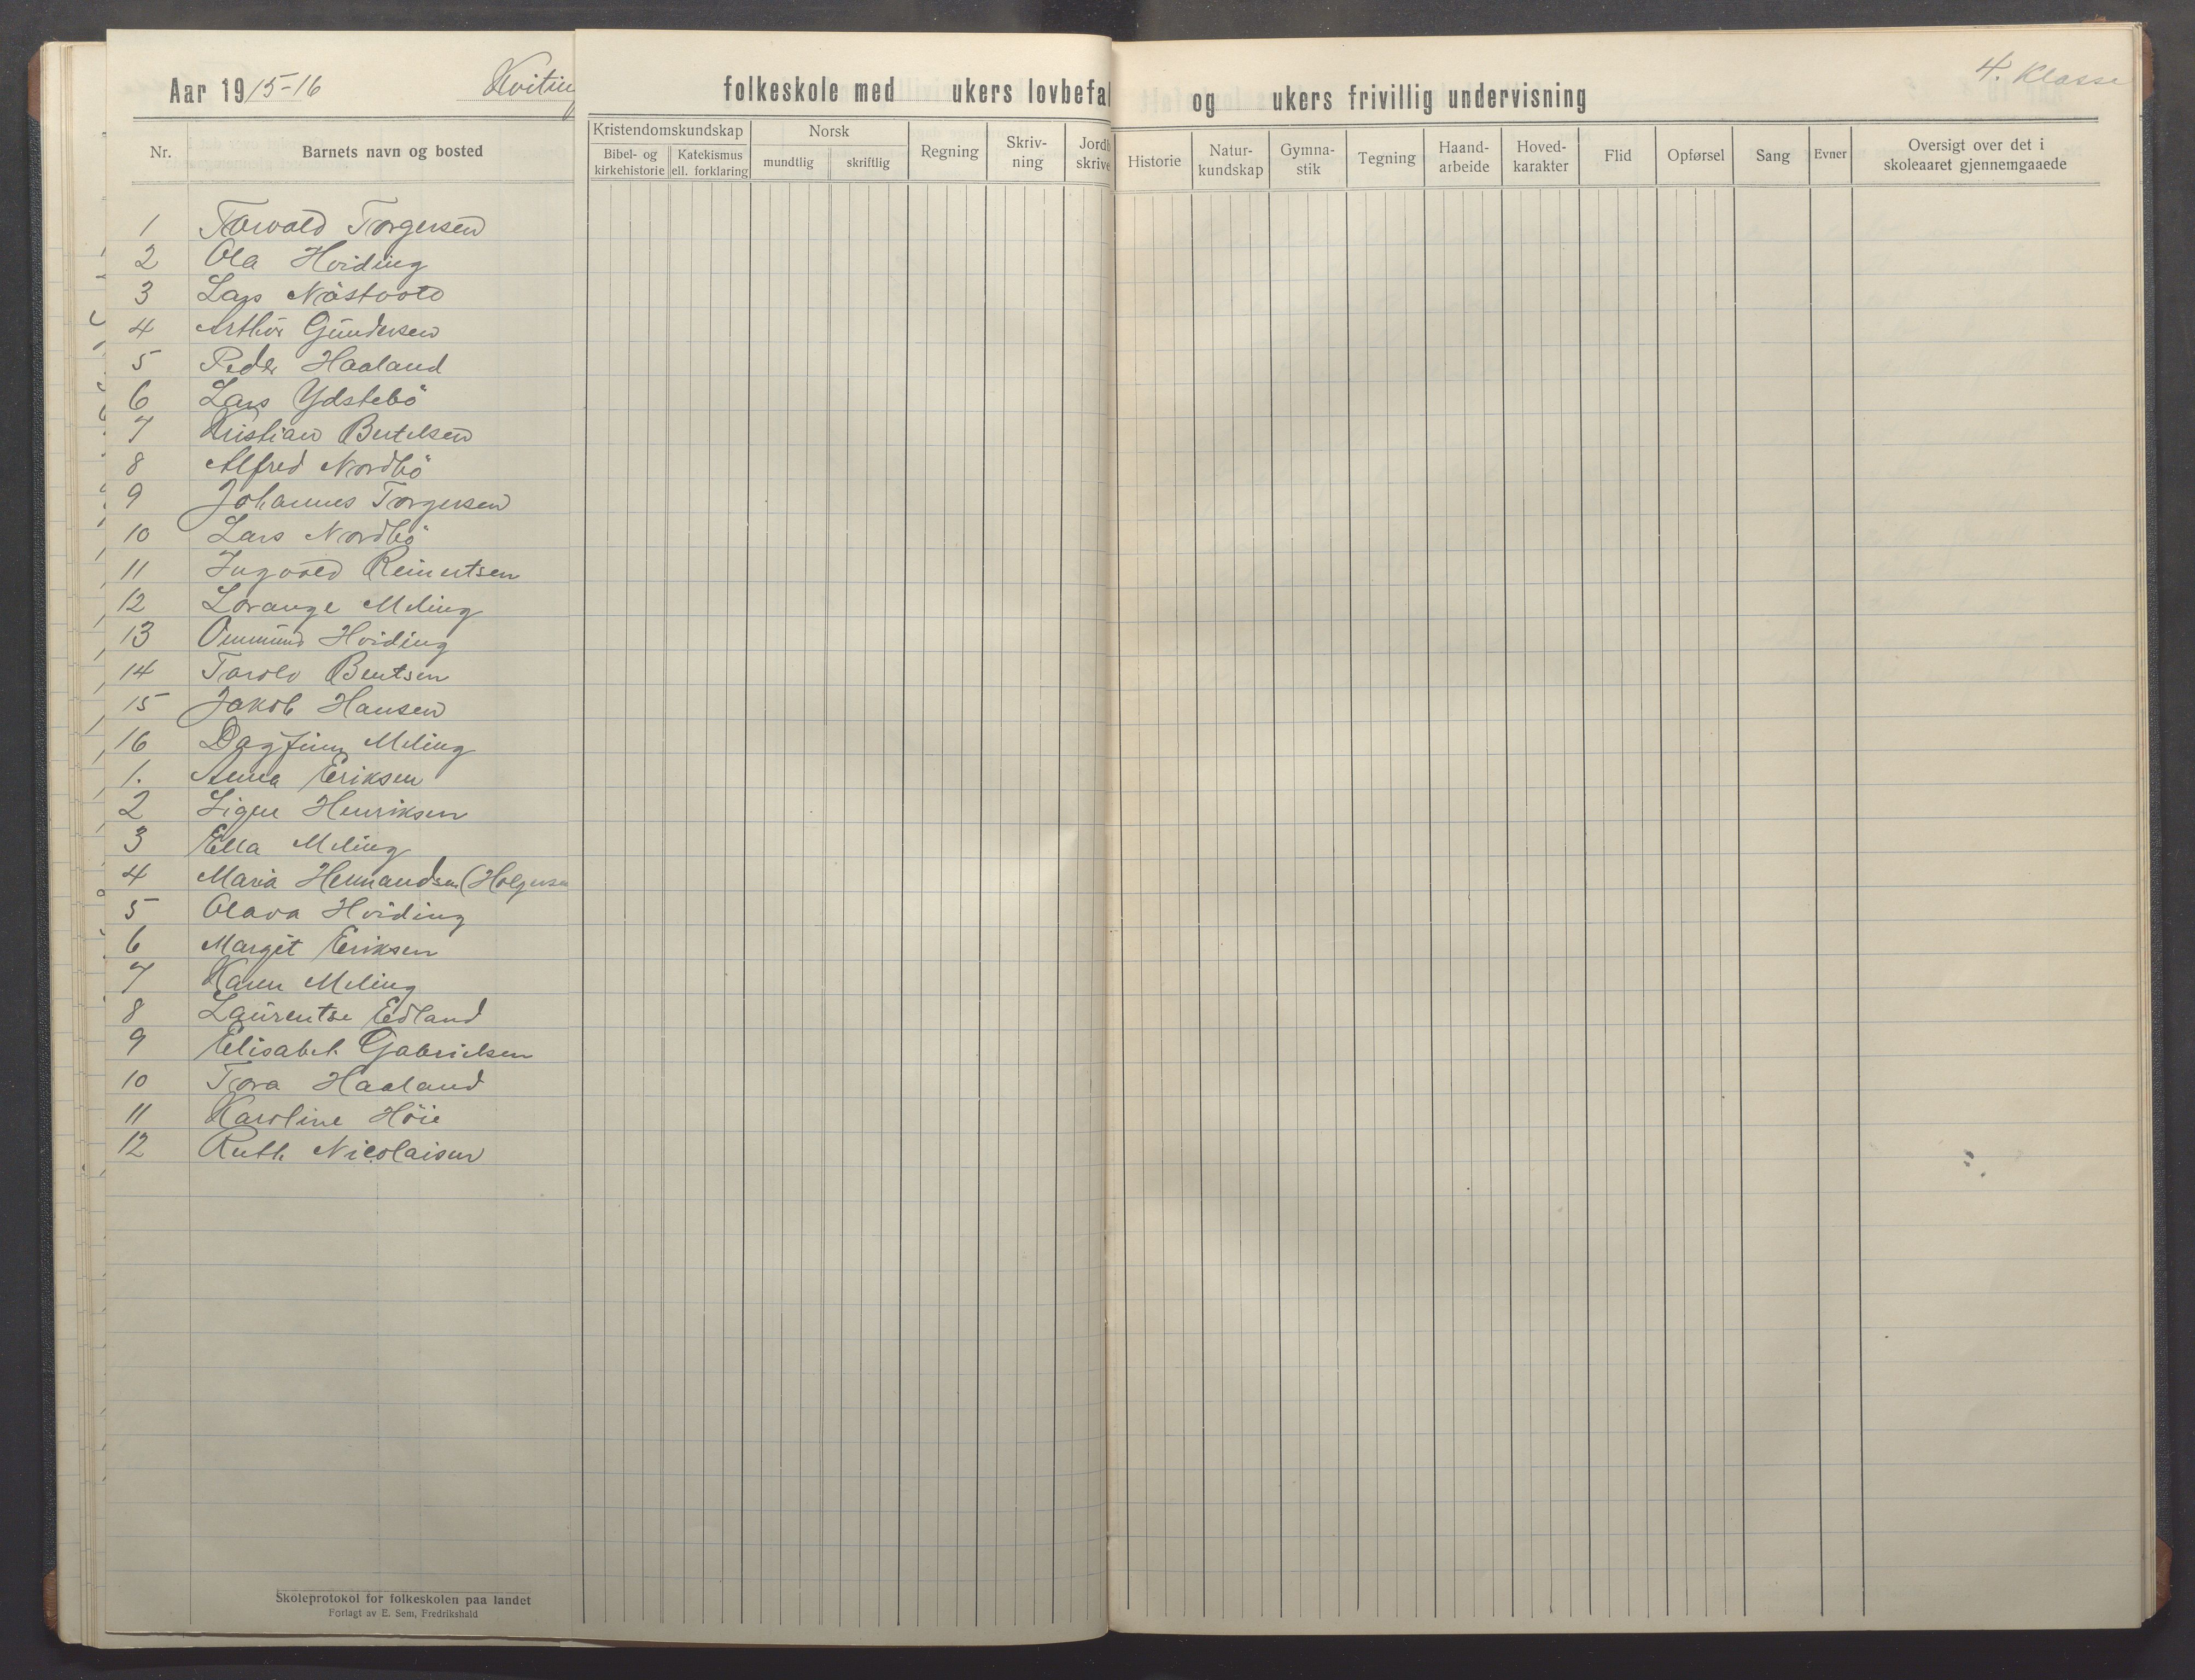 Aar 1915-16 Kviting
folkeskole med ukers lovbefal og ukers frivillig undervisning
4. Klasse
Nr. Barnets navn og bosted
Kristendomskundskap Norsk Regning Skriv-ning Jordb skrive Historie Natur-kundskap Gymna-stik Tegning Haand-arbeide Hoved-karakter Flid Opførsel Sang Evner Oversigt over det i skoleaaret gjennemgaaede
Bibel- og kirkehistorie Katekismus ell. forklaring mundtlig skriftlig
1 Torvald Torgersen
2 Ola Hviding
3 Lars Nåstvold
4 Arthur Gundersen
5 Peder Haaland
6 Lars Ydstebö
7 Kristian Bertelsen
8 Alfred Nordbö
9 Johannes Torgersen
10 Lars Nordbö
11 Ingvald Reinertsen
12 Lorange Meling
13 Ommund Hviding
14 Torolv Bentsen
15 Jakob Hansen
16 Dagfinn Meling
1. Anna Eriksen
2 Signe Henriksen
3 Ella Meling
4 Maria Hermandsen (Holgersen
5 Olava Hviding
6 Margit Eriksen
7 Karen Meling
8 Laurentse Edland
9 Elisabet Gabrielsen
10 Tora Haaland
11 Karoline Höie
12 Ruth Nicolaisen
Skoleprotokol for folkeskolen paa landet
Forlagt av E. Sem, Fredrikshald